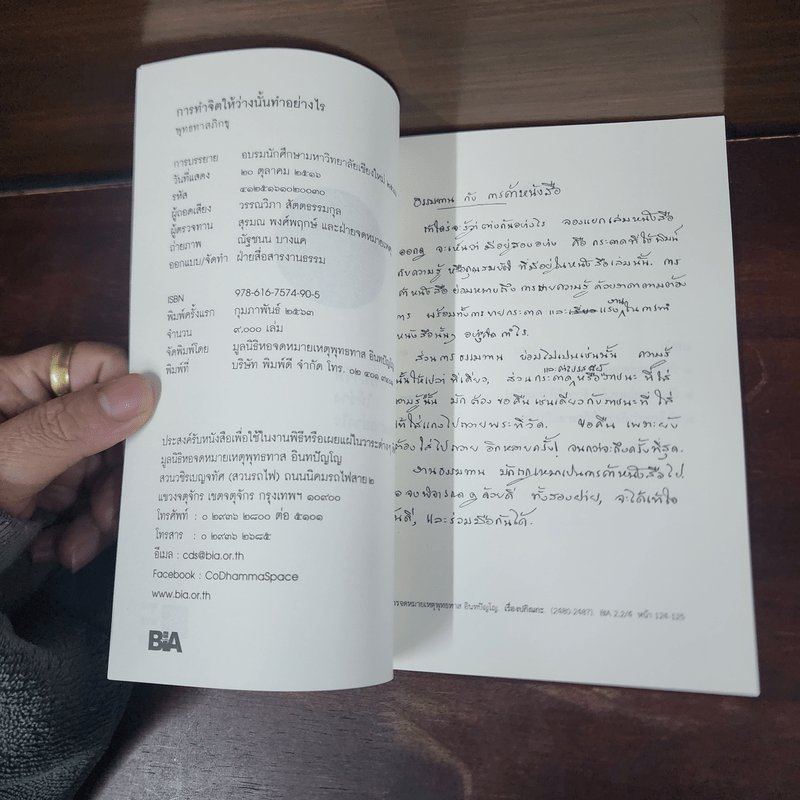 การทำจิตให้ว่างนั้นทำอย่างไร
พุทธทาสภิกขุ
การบรรยาย อบรมนักศึกษามหาวิทยาลัยเชียงใหม่
วันที่แสดง ๒๐ ตุลาคม ๒๕๑๖
รหัส ๔๑๒๕๑๖๑๐๒๐๐๓๐
ผู้ถอดเสียง วรรณวิภา สัตตธรรมกุล
ผู้ตรวจทาน สุรมณ พงศ์พฤกษ์ และฝ่ายจดหมายเหตุ
ถ่ายภาพ ณัฐชนน บางแค
ออกแบบ/จัดทำ ฝ่ายสื่อสารงานธรรม
ISBN 978-616-7574-90-5
พิมพ์ครั้งแรก กุมภาพันธ์ ๒๕๖๓
จำนวน ๙,๐๐๐ เล่ม
จัดพิมพ์โดย มูลนิธิหอจดหมายเหตุพุทธทาส อินทปัญโญ
พิมพ์ที่ บริษัท พิมพ์ดี จำกัด โทร. ๐๒ ๔๐๑
ประสงค์รับหนังสือเพื่อใช้ในงานพิธีหรือเผยแผ่ในวาระต่างๆ
มูลนิธิหอจดหมายเหตุพุทธทาส อินทปัญโญ
สวนวชิรเบญจทัศ (สวนรถไฟ) ถนนนิคมรถไฟสาย ๒
แขวงจตุจักร เขตจตุจักร กรุงเทพฯ ๑๐๙๐๐
โทรศัพท์ : ๐ ๒๙๓๖ ๒๘๐๐ ต่อ ๕๑๐๑
โทรสาร : ๐ ๒๙๓๖ ๒๖๘๕
อีเมล : cds@bia.or.th
Facebook : CoDhammaSpace
www.bia.or.th
BIA
ธรรมทาน กับ การค้าหนังสือ
ทำใครจะรู้ว่าต่างกันอย่างไร ลองแยกเล่มหนังสือ
ออกดู จะเห็นว่ามีอยู่สองอย่าง คือ กระดาษที่ใช้พิมพ์
กับความรู้ หรือคุณสมบัติ ที่มีอยู่ในหนังสือเล่มนั้น. การ
ค้าหนังสือ ย่อมหมายถึงการขายความรู้ ด้วยราคาตามต้อง
การ พร้อมทั้งการขายกระดาษ และแรงงานในการทำ
หนังสือนั้นๆ อย่างคิดกำไร.
ส่วนการธรรมทาน ย่อมไม่เป็นเช่นนั้น ความรู้
นั้นให้เปล่า ทีเดียว, ส่วนกระดาษและค่าแรงหรือภาชนะ ที่ใส่
ความรู้นั้น มักต้องขอคืน เช่นเดียวกับภาชนะ ที่ใส่
ใส่แกงไปถวายพระที่วัด. ขอคืน เพราะยัง
ต้องใส่ไปถวาย อีกหลายครั้ง จนกว่าจะถึงครั้งที่สุด.
งานธรรมทาน มักถูกเหมาเป็นการค้าหนังสือไป.
จงพิจารณาดูด้วยดี ทั้งสองฝ่าย, จะได้เข้าใจ
กันดี, และร่วมมือกันได้.
จดหมายเหตุพุทธทาส อินทปัญโญ. เรื่องปกิณกะ. (2480-2487). BIA 2.2/4 หน้า 124-125